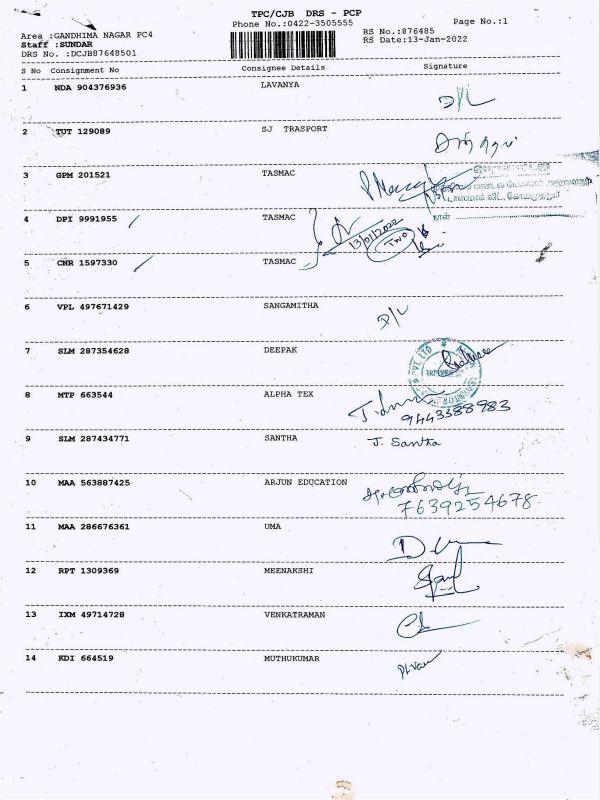 TPC/CJB DRS - PCP
Phone No.:0422-3505555
Page No.:1
Area :GANDHIMA NAGAR PC4
RS No.:876485
Staff :SUNDAR
RS Date:13-Jan-2022
DRS No. :DCJB87648501
S No Consignment No Consignee Details Signature
1 NDA 904376936 LAVANYA
2 TUT 129089 SJ TRASPORT
3 GPM 201521 TASMAC
4 DPI 9991955 TASMAC
நாள்
13/01/2022
TWO
5 CNR 1597330 TASMAC
6 VPL 497671429 SANGAMITHA
7 SLM 287354628 DEEPAK
8 MTP 663544 ALPHA TEX
9443388983
9 SLM 287434771 SANTHA J. Santha
10 MAA 563887425 ARJUN EDUCATION
7639254678
11 MAA 286676361 UMA
12 RPT 1309369 MEENAKSHI
13 IXM 49714728 VENKATRAMAN
14 KDI 664519 MUTHUKUMAR